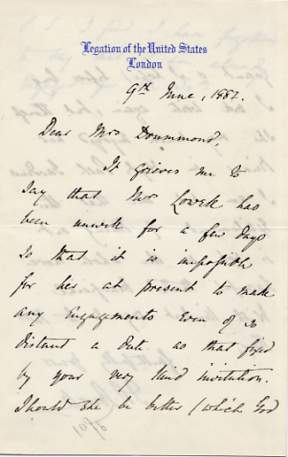 Legation of the United States
London
9th June, 1882.
Dear Mrs Drummond,
It grieves me to
say that Mrs Lowell has
been unwell for a few days
so that it is impossible
for her at present to make
any engagements even of so
distant a date as that fixed
by your very kind invitation.
Should she be better (which God